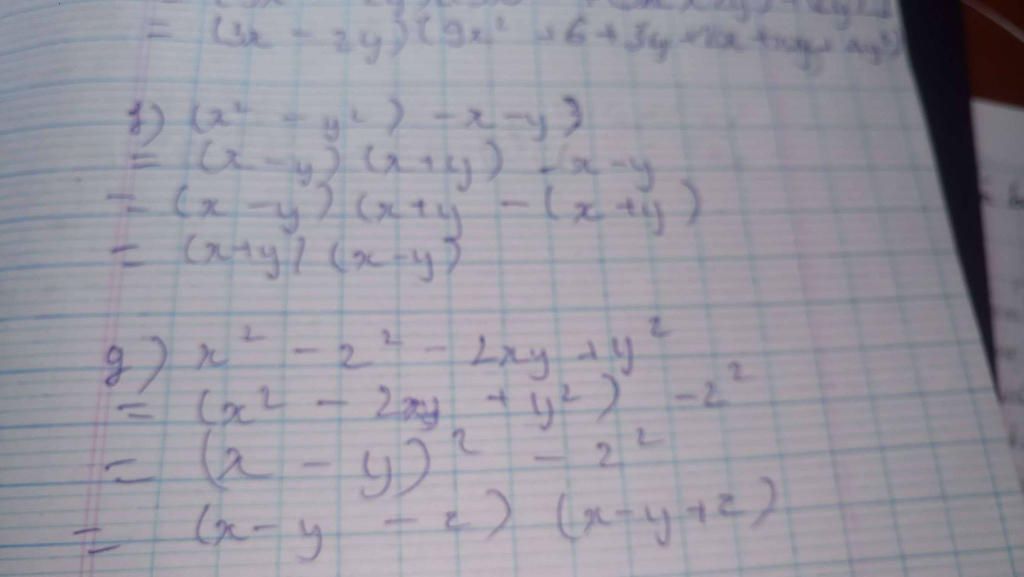 = (3x - 2y) (9x² + 6 + 3y
f) (x² - y²) - x - y)
= (x - y) (x + y) - x - y
= (x - y) (x + y - (x + y)
= (x + y) (x - y)
g) x² - z² - 2xy + y²
= (x² - 2xy + y²) - z²
= (x - y)² - z²
= (x - y - z) (x - y + z)